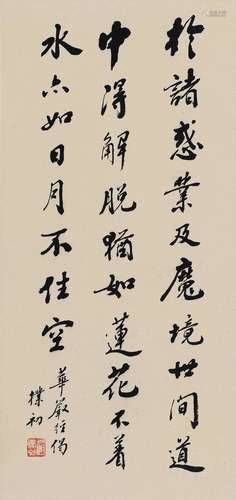 於諸惑業及魔境世間道
中得解脫猶如蓮花不着
水亦如日月不住空
華嚴經偈
樸初